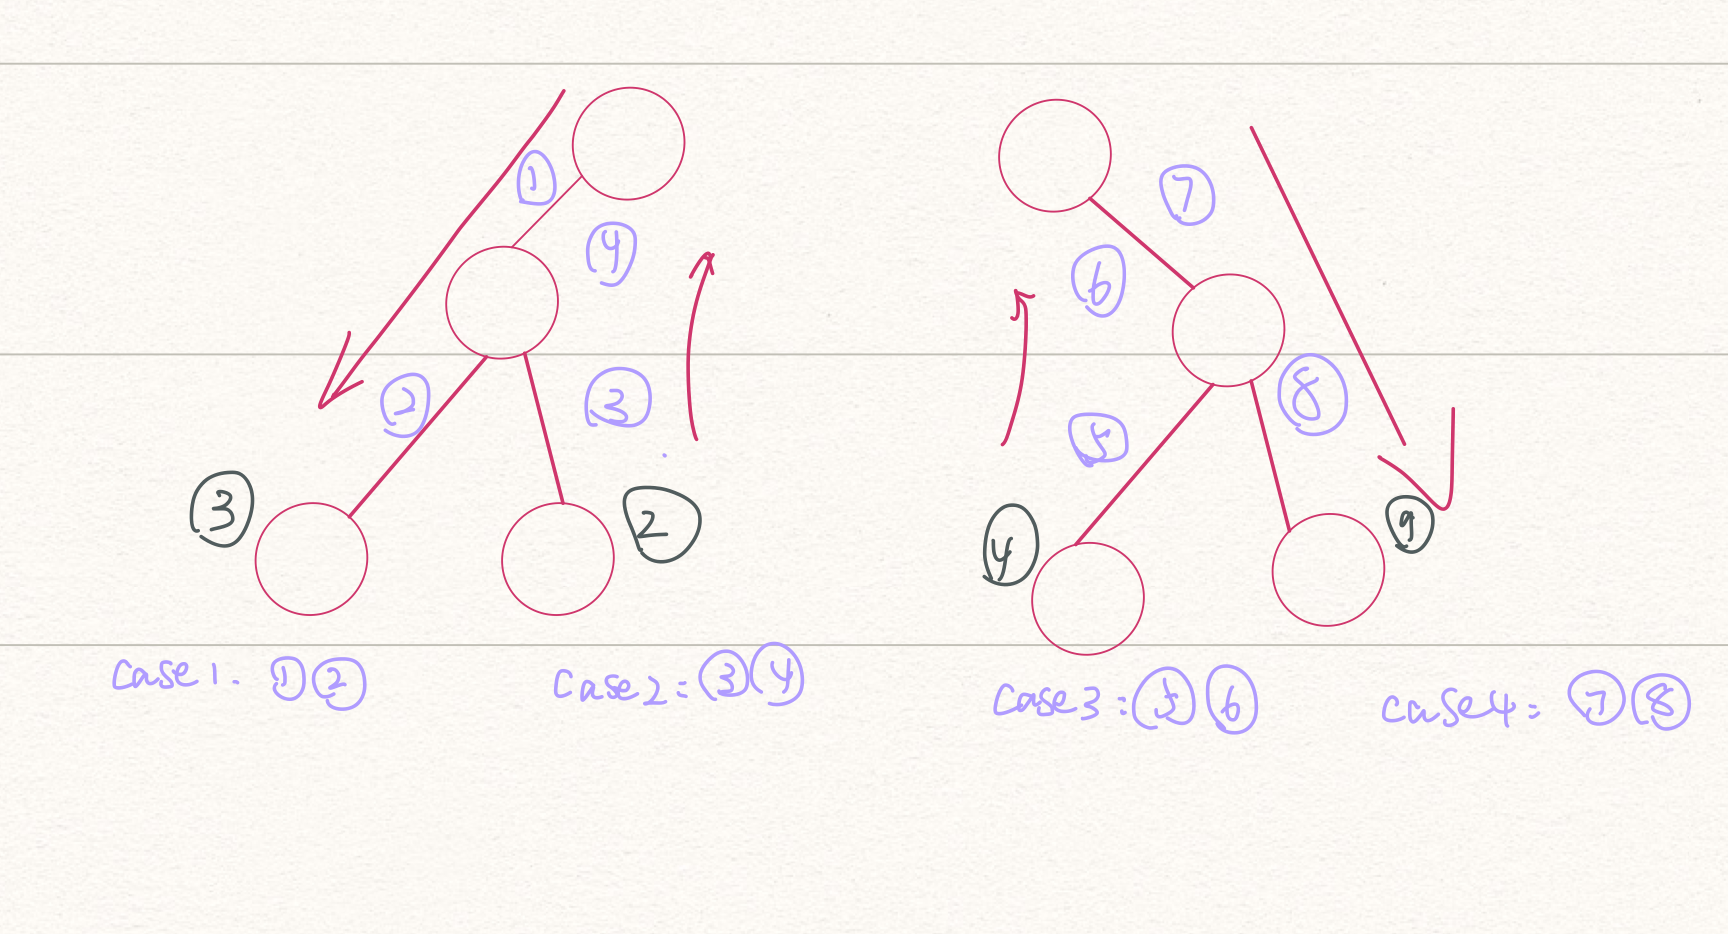 ① ⑦
④ ⑥
② ③ ⑧
⑤
③ ② ④ 9
case1: ①② case2: ③④ case3: ⑤⑥ case4: ⑦⑧